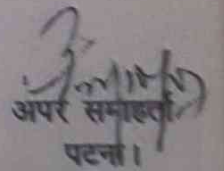 अपर समाहर्ता
पटना।